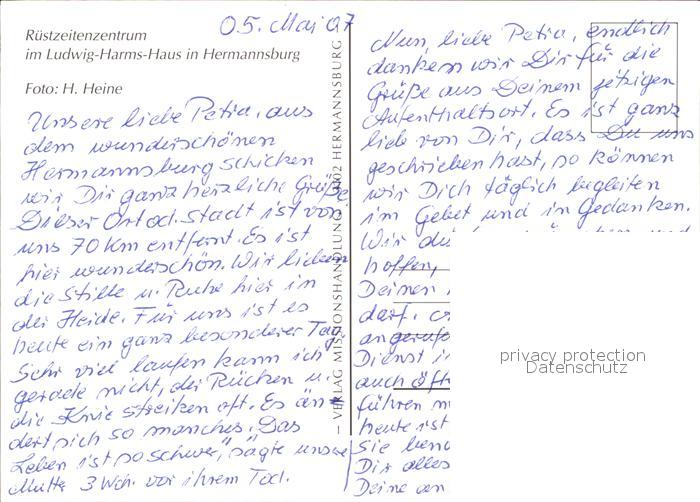 05. Mai 07
Rüstzeitenzentrum
im Ludwig-Harms-Haus in Hermannsburg
Foto: H. Heine
Unsere liebe Petra, aus
dem wunderschönen
Hermannsburg schicken
wir Dir ganz herzliche Grüße
Dieser Ort od. Stadt ist von
uns 70 Km entfernt. Es ist
hier wunderschön. Wir lieben
die Stille u. Ruhe hier in
der Heide. Für uns ist es
heute ein ganz besonderer Tag
Sehr viel laufen kann ich
gerade nicht, der Rücken u.
die Knie streiken oft. Es än=
dert sich so manches. Das
Leben ist so schwer", sagte unsere
Mutter 3 Wch. vor ihrem Tod.
– VERLAG MISSIONSHANDLUNG HERMANNSBURG
Nun, liebe Petra, endlich
danken wir Dir für die
Grüße aus Deinem jetzigen
Aufenthaltsort. Es ist ganz
lieb von Dir, dass Du uns
geschrieben hast, so können
wir Dich täglich begleiten
im Gebet und in Gedanken.
Wir
hoffen,
Deinen
darf.
angerufe
Dienst i
auch öft
führen
heute ist
Sie
Dir alles
Deine
privacy protection
Datenschutz